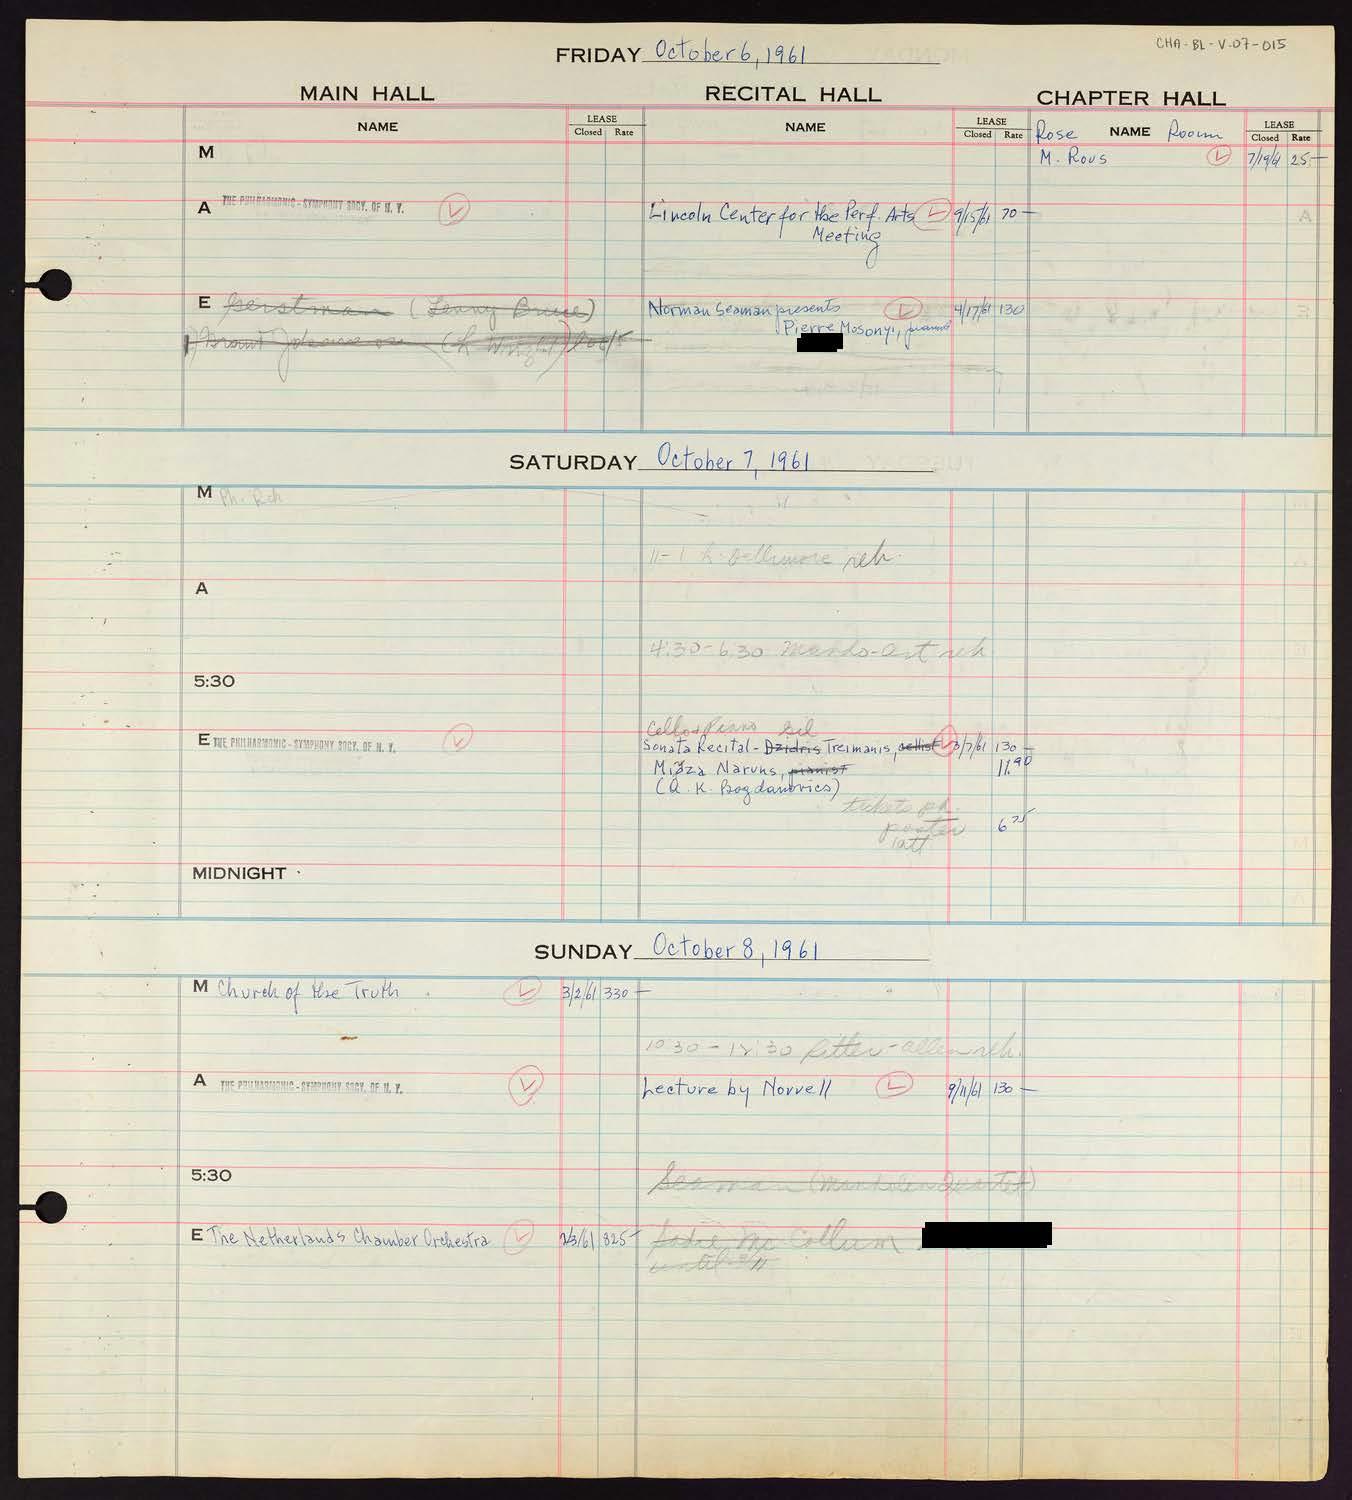 CHA-BL-V-07-015
FRIDAY October 6, 1961
MAIN HALL RECITAL HALL CHAPTER HALL
NAME LEASE Closed Rate NAME LEASE Closed Rate Rose NAME Room LEASE Closed Rate
M M. Rous 7/19/61 25-
A THE PHILHARMONIC-SYMPHONY SOCY. OF N. Y. Lincoln Center for the Perf. Arts 9/15/61 70-
Meeting
E Gerstman (Lenny Bruce) Norman Seaman presents 4/17/61 130
Pierre Mosonyi, pianist
SATURDAY October 7, 1961
M Ph. Reh
11-1 reh.
A
4:30-6:30 reh
5:30
Cello & Piano
E THE PHILHARMONIC-SYMPHONY SOCY. OF N. Y. Sonata Recital - Dzidris Treimanis, cellist 3/7/61 130-
Mirza Naruns, pianist 11.90
(A. K. Bogdanovics)
tickets
poster 6 75
MIDNIGHT
SUNDAY October 8, 1961
M Church of the Truth 3/2/61 330-
10 30 - 12:30 reh.
A THE PHILHARMONIC-SYMPHONY SOCY. OF N. Y. Lecture by Norvell 9/11/61 130-
5:30 Seaman (Mandolin Quartet)
E The Netherlands Chamber Orchestra 2/3/61 825- Mc Collum
until